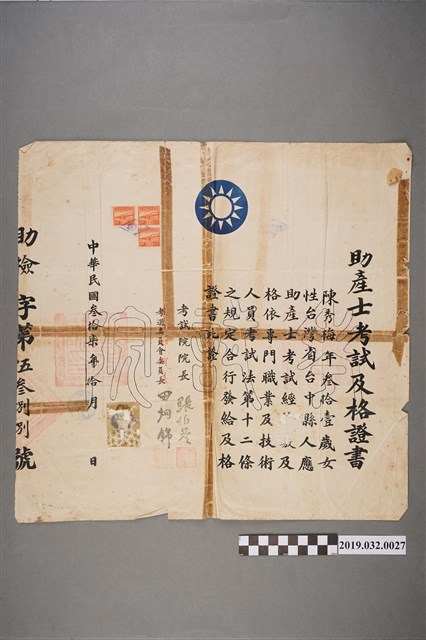 助產士考試及格證書
陳秀梅年叁拾壹歲女
性台灣省台中縣人應
助產士考試經 及
格依專門職業及技術
人員考試法第十二條
之規定合行發給及格
證書此證
考試院院長 張伯苓
考選委員會委員長 田炯錦
中華民國叁拾柒年拾月 日
助檢字第伍叁捌捌號
考試院
2019.032.0027